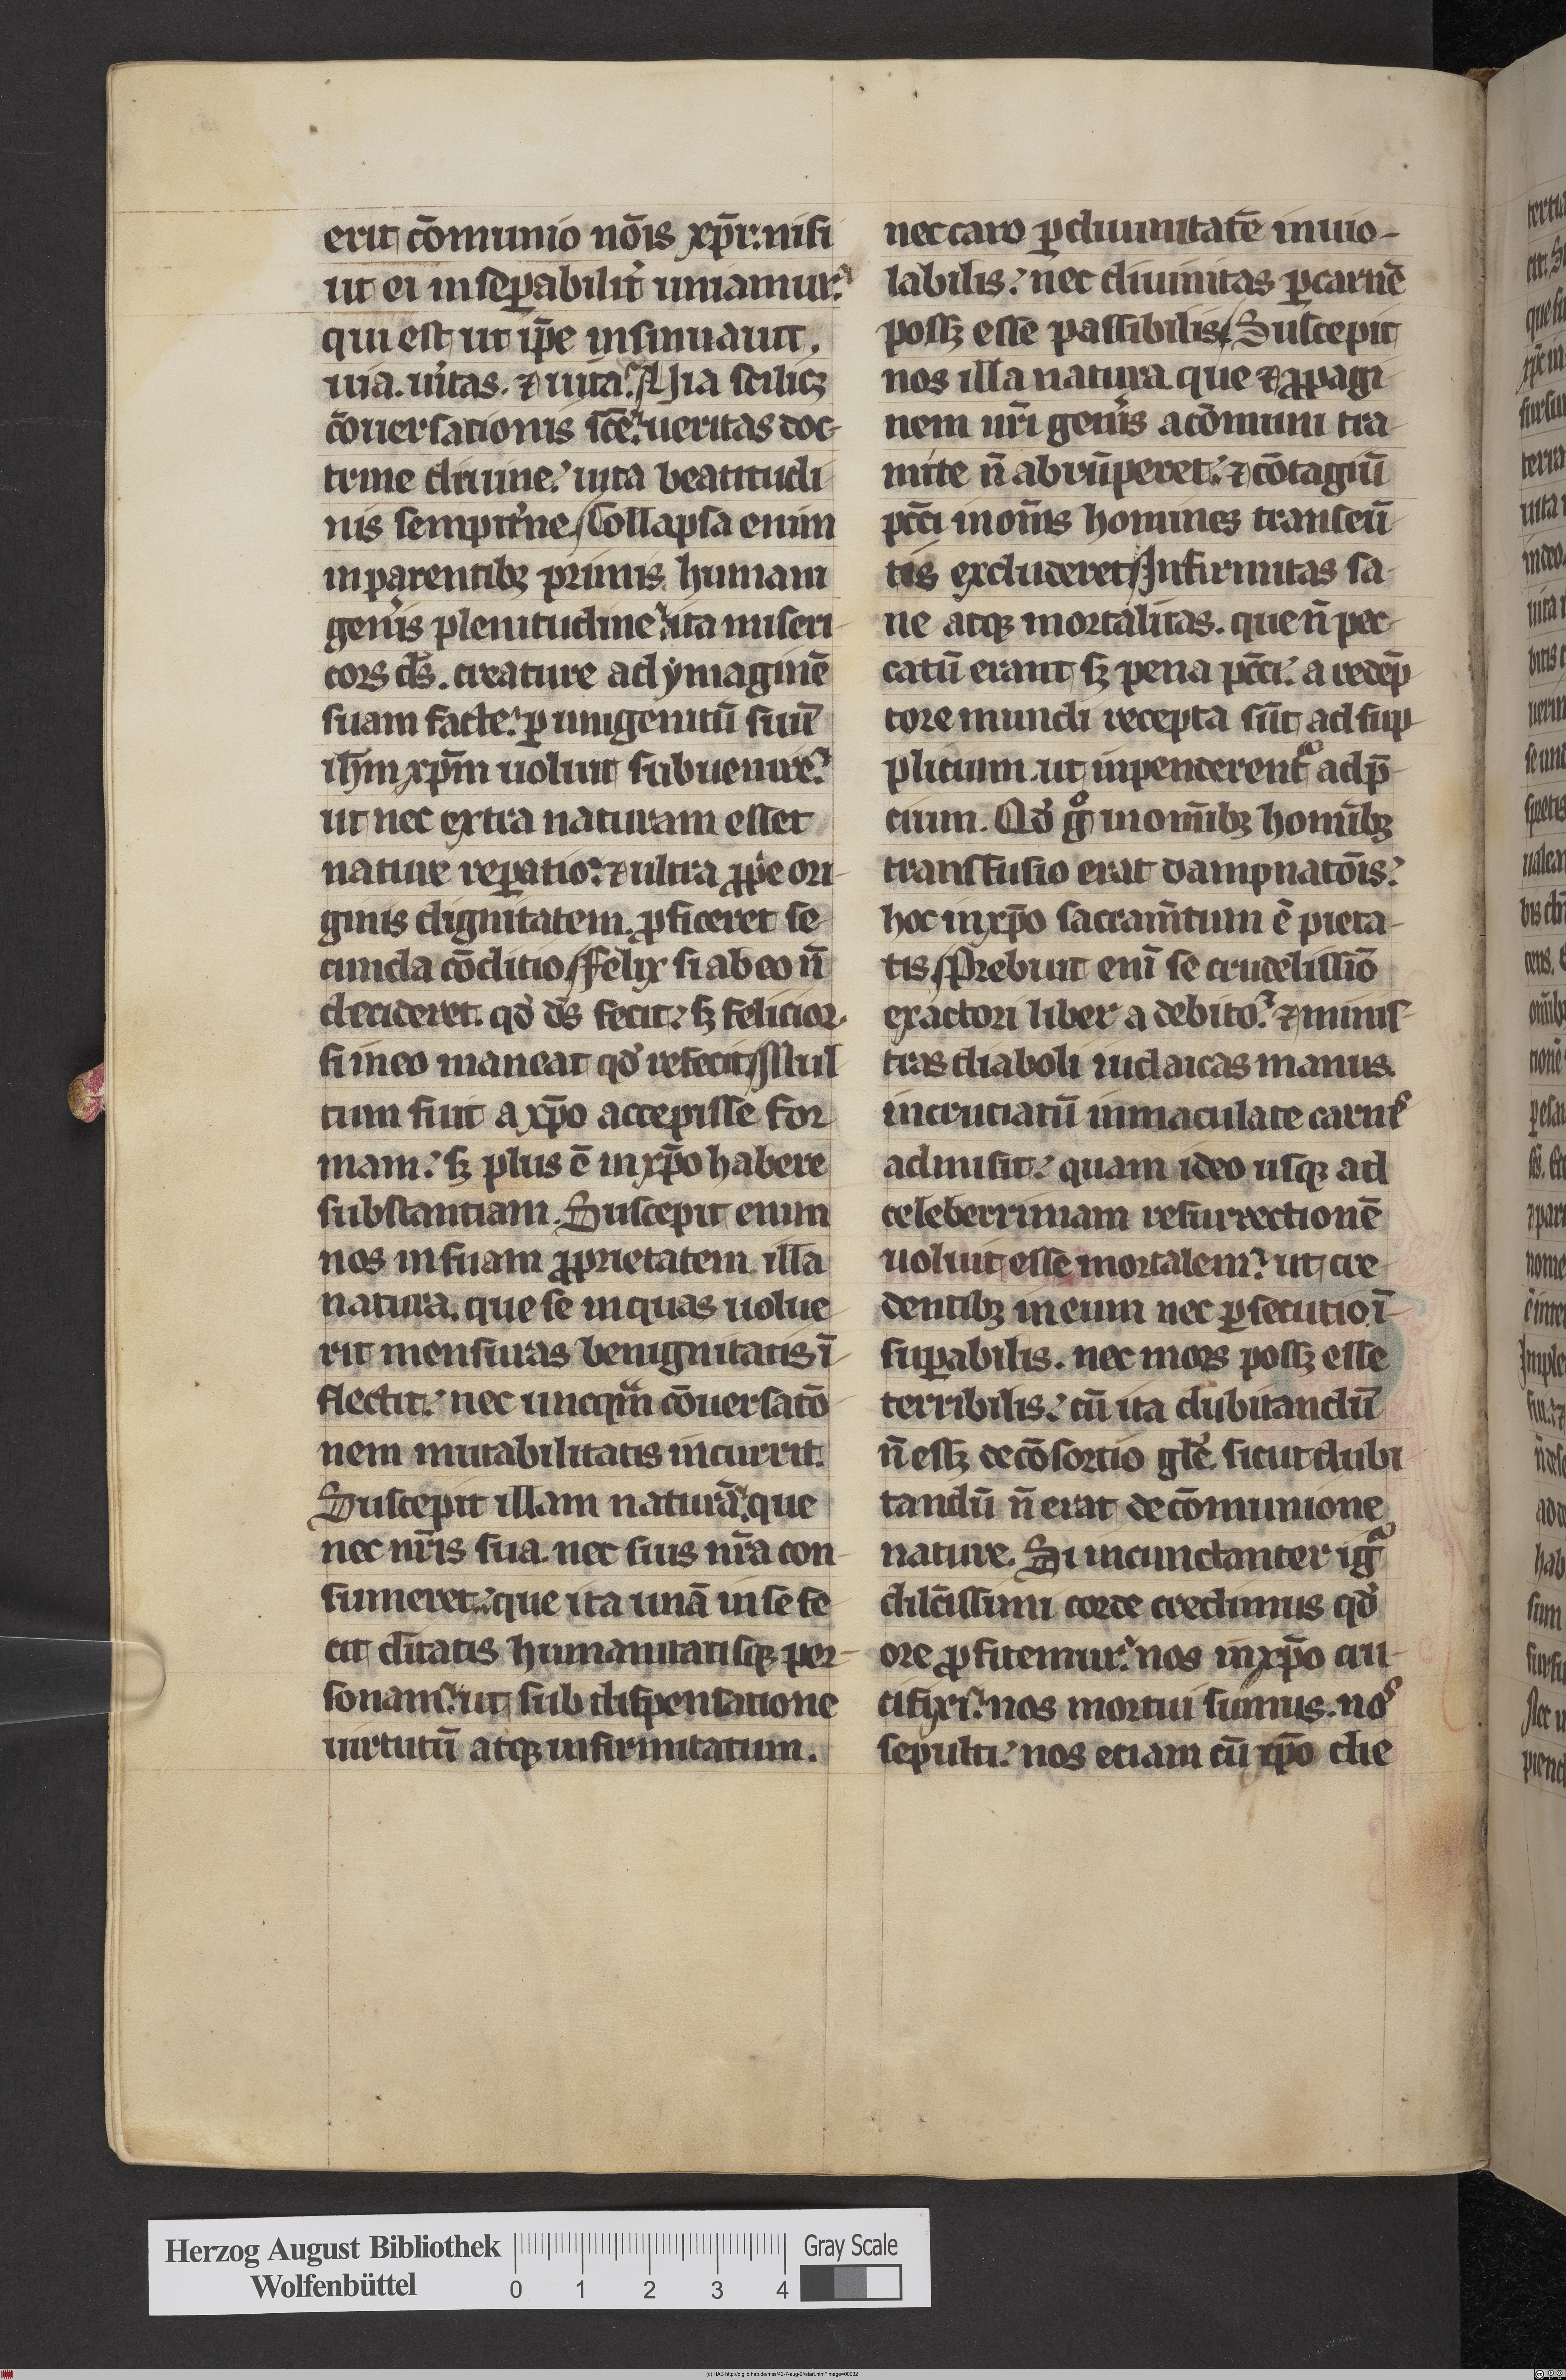 erit cōmunio nōis xp̄i: nisi
ut ei inseꝑabilit̉ uniamur.
qui est ut ip̄e insinuauit.
uia. u̓itas. ⁊ uita. Via scilicꝫ
cōuersationis sc̄e. ueritas doc-
trine diuine. uita beatitudi
nis sempit̉ne. Collapsa enim
in parentibꝫ primis humani
gen̉is plenitudine. ita miseri-
cors ds̄. creature ad ymaginē
suam facte. ꝑ unigenitū suū
ih̄m xp̄m uoluit subuenire.
ut nec extra naturam esset
nature reꝑatio. ⁊ ultra ꝓp̓e ori-
ginis dignitatem. ꝓficeret se
cunda cōditio. Felix si ab eo n̄
decideret. qd̓ ds̄ fecit. sꝫ felicior
si in eo maneat qd̓ refecit. Mul
tum fuit a xp̄o accepisse for
mam. sꝫ plus ē in xp̄o habere
substantiam. Suscepit enim
nos in suam ꝓprietatem illa
natura. que se in quas uolue
rit mensuras benignitatis ī
flectit. nec uncqᵃm cōuersatō
nem mutabilitatis incurrit.
Suscepit illam naturā. que
nec nr̄is sua. nec suis nr̄a con-
sumeret. que ita unā in se fe
cit dītatis humanitatisqꝫ per-
sonam. ut sub dispensatione
uirtutū atqꝫ infirmitatum.
nec caro ꝑ diuinitatē inuio-
labilis. nec diuinitas ꝑ carnē
possꝫ esse passibilis. Suscepit
nos illa natura que ⁊ ꝓpagi
nem nr̄i gen̉is a cōmuni tra
mite n̄ abrūperet. ⁊ cōtagiū
pcc̄i in om̄s homines transeū
tis excluderet. Infirmitas sa-
ne atqꝫ mortalitas. que n̄ pec
catū erant sꝫ pena pcc̄i. a redēp
tore mundi recepta sūt ad sup
plicium. ut inpenderentᵃ ad p̄
cium. Qd̓ gͦ in omībꝫ homībꝫ
transfusio erat dampnatōis.
hoc in xp̄o sacram̄tum ē pieta-
tis. Prebuit enī se crudelissīo
exactori liber a debito. ⁊ minis-
tras diaboli iudaicas manus.
in cruciatū inmaculate carnis
admisit. quam ideo usqꝫ ad
celeberrimam resurrectionē
uoluit esse mortalem. ut cre-
dentibꝫ in eum nec ꝑsecutio ī-
suꝑabilis. nec mors possꝫ esse
terribilis. cū ita dubitandū
n̄ essꝫ de cōsortio gl̄e. sicut dubi
tandū n̄ erat de cōmunione
nature. Si incunctanter igᵃ
dilc̄issimi corde credimus qd̓
ore ꝓfitemur. nos in xp̄o cru-
cifixi. nos mortui sumus. nos
sepulti. nos eciam cū xp̄o die
Herzog August Bibliothek
Wolfenbüttel
0 1 2 3 4
Gray Scale
(c) HAB http://diglib.hab.de/mss/42-7-aug-2f/start.htm?image=00032